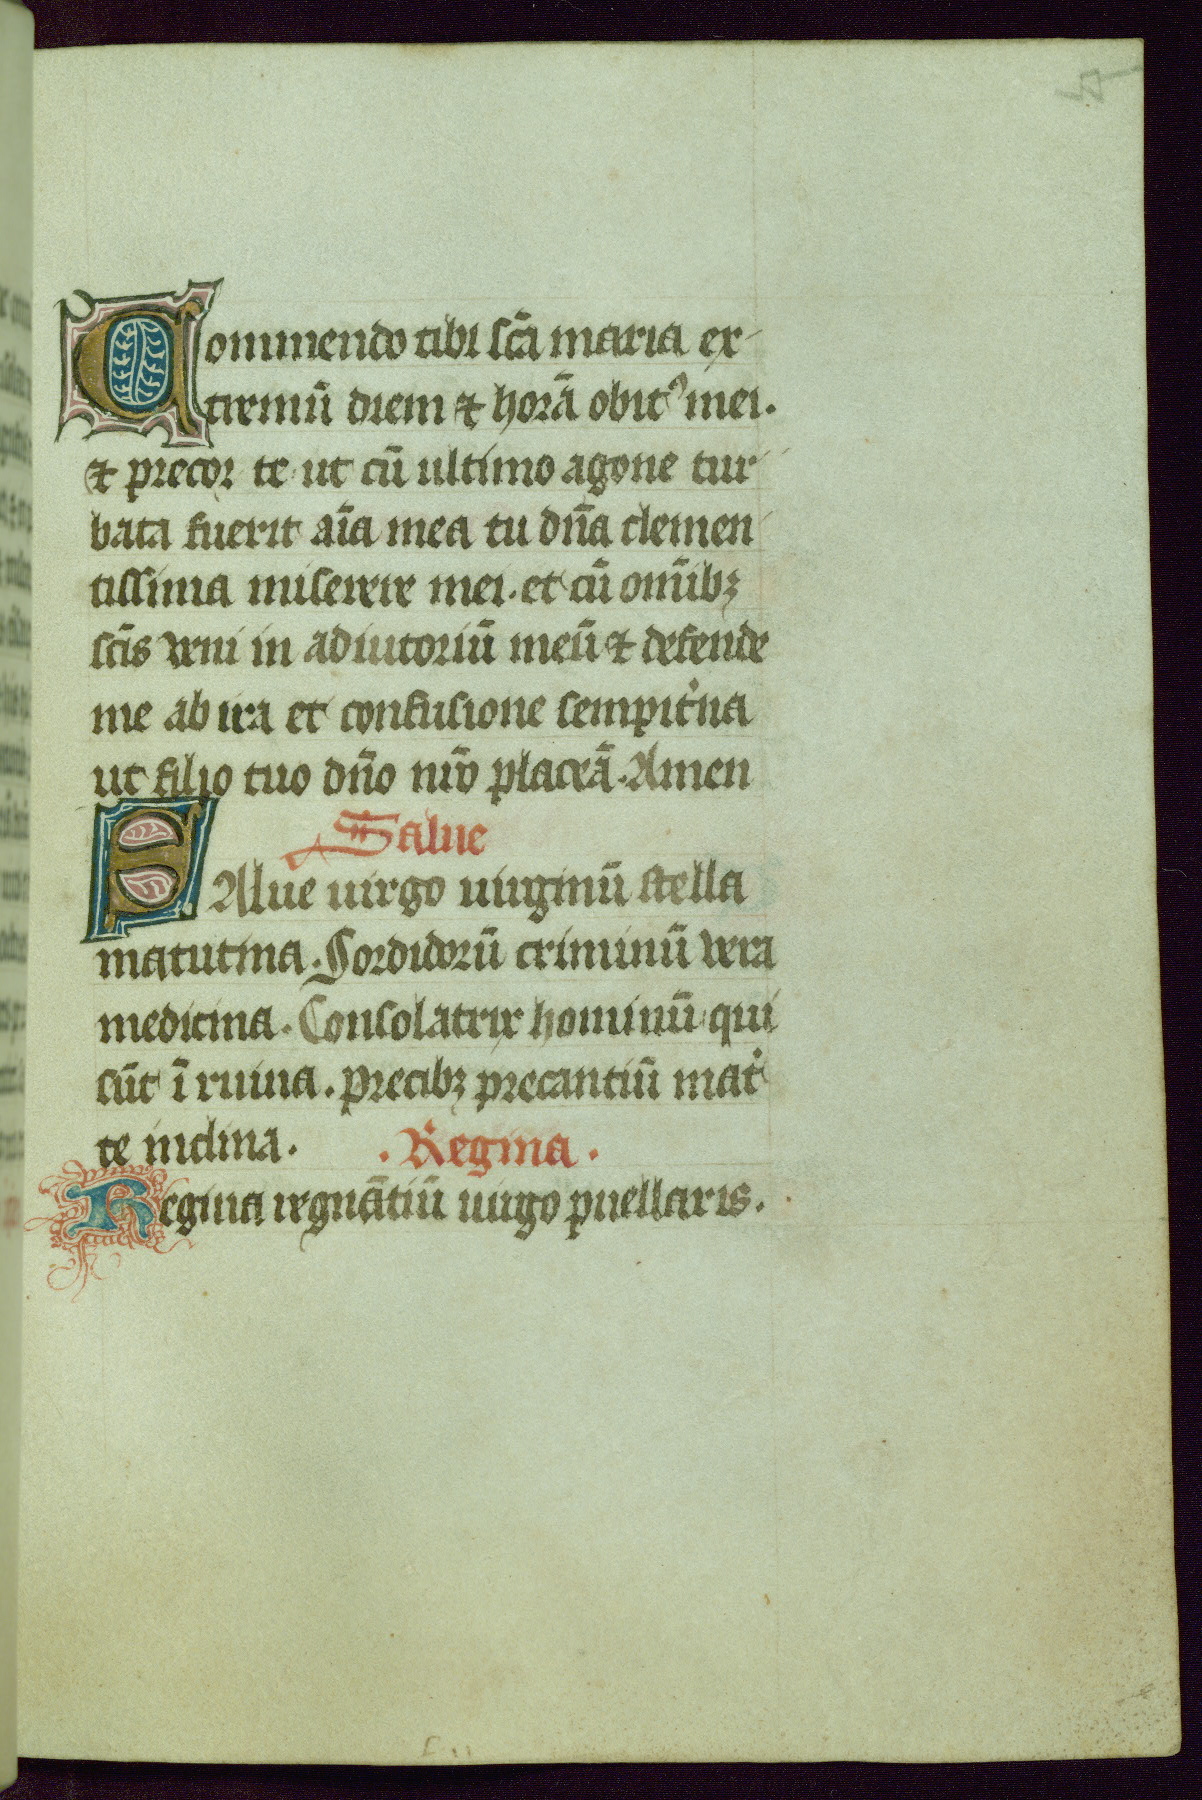 Commendo tibi sc̄a maria ex-
tremū diem ⁊ horā obitꝰ mei.
⁊ precor te ut cū ultimo agone tur
bata fuerit aīa mea tu dn̄a clemen
tissima miserere mei. et cū om̄ibꝫ
sc̄is veni in adiutoriū meū ⁊ defende
me ab ira et confusione sempit̾na
ut filio tuo dn̄o nr̄o placeā. Amen
Salue
SAlue uirgo uirginū stella
matutina. Sordidorū criminū vera
medicina. Consolatrix hominū qui
sūt ī ruina. precibꝫ precantiū mat̾
te inclina.
. Regina .
Regina regnātiū uirgo puellaris.